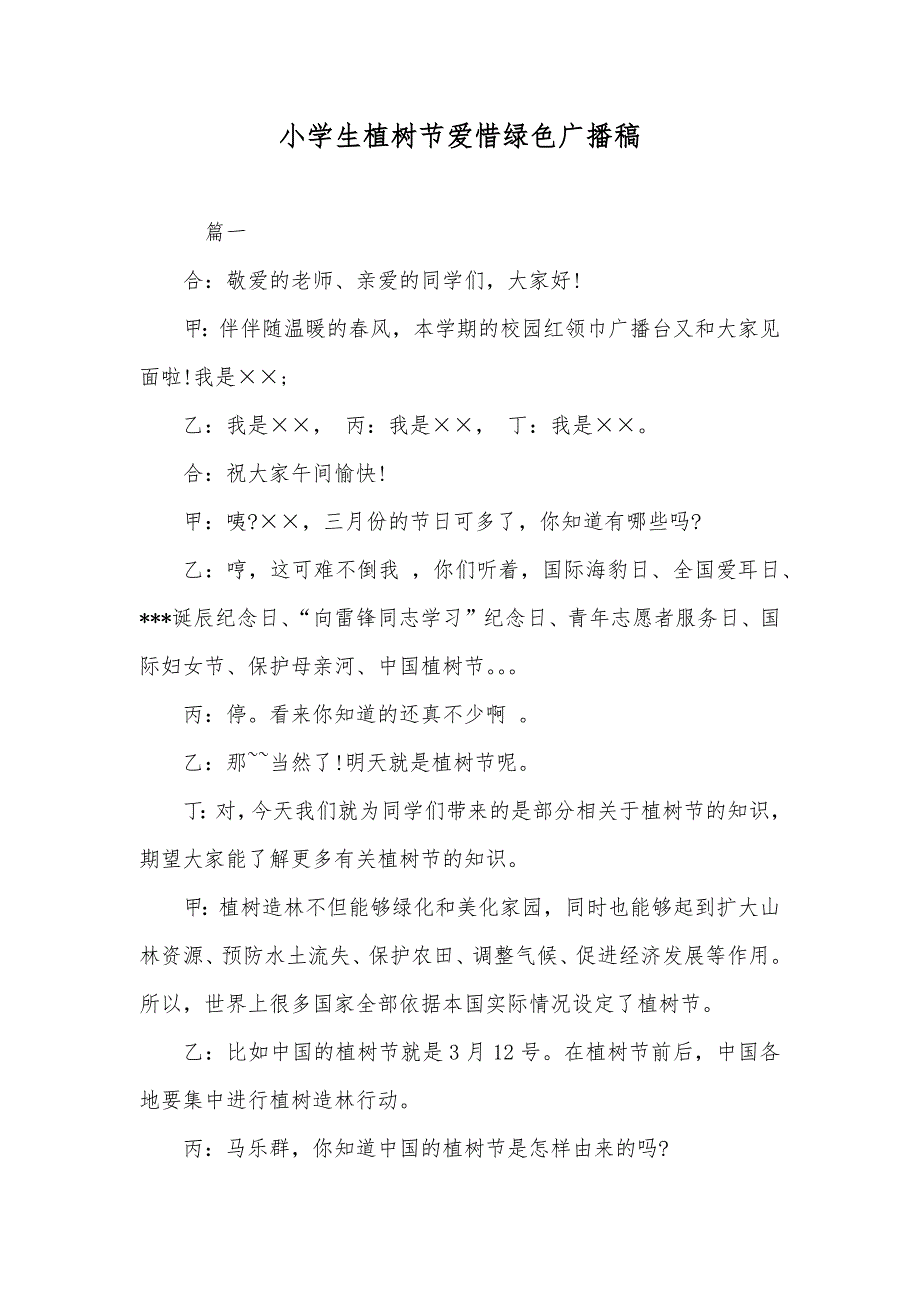 小学生植树节爱惜绿色广播稿
篇一
合：敬爱的老师、亲爱的同学们，大家好!
甲：伴伴随温暖的春风，本学期的校园红领巾广播台又和大家见
面啦!我是××;
乙：我是××， 丙：我是××， 丁：我是××。
合：祝大家午间愉快!
甲：咦?××，三月份的节日可多了，你知道有哪些吗?
乙：哼，这可难不倒我 ，你们听着，国际海豹日、全国爱耳日、
***诞辰纪念日、“向雷锋同志学习”纪念日、青年志愿者服务日、国
际妇女节、保护母亲河、中国植树节。。。
丙：停。看来你知道的还真不少啊 。
乙：那~~当然了!明天就是植树节呢。
丁：对，今天我们就为同学们带来的是部分相关于植树节的知识，
期望大家能了解更多有关植树节的知识。
甲：植树造林不但能够绿化和美化家园，同时也能够起到扩大山
林资源、预防水土流失、保护农田、调整气候、促进经济发展等作用。
所以，世界上很多国家全部依据本国实际情况设定了植树节。
乙：比如中国的植树节就是3月12号。在植树节前后，中国各
地要集中进行植树造林行动。
丙：马乐群，你知道中国的植树节是怎样由来的吗?